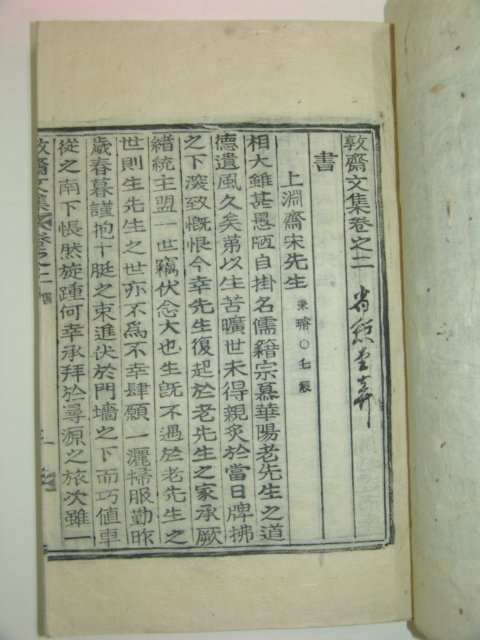 敦齋文集卷之二
書
上淵齋宋先生 秉璿○壬辰
相大雖甚愚陋自掛名儒籍宗慕華陽老先生之道
德遺風久矣第以生苦曠世未得親炙於當日牌拂
之下深致慨恨今幸先生復起於老先生之家承厥
緖統主盟一世竊伏念大也生旣不遇於老先生之
世則生先生之世亦不爲不幸肆願一灑掃服勤昨
歲春暮謹抱十脡之束進伏於門墻之下而巧値車
從之南下悵然旋踵何幸承拜於尋源之旅次雖一
敦齋文集卷之二
書
一